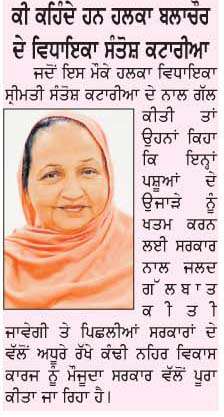 ਕੀ ਕਹਿੰਦੇ ਹਨ ਹਲਕਾ ਬਲਾਚੌਰ
ਦੇ ਵਿਧਾਇਕਾ ਸੰਤੋਸ਼ ਕਟਾਰੀਆ
ਜਦੋਂ ਇਸ ਮੌਕੇ ਹਲਕਾ ਵਿਧਾਇਕਾ
ਸ੍ਰੀਮਤੀ ਸੰਤੋਸ਼ ਕਟਾਰੀਆ ਦੇ ਨਾਲ ਗੱਲ
ਕੀਤੀ ਤਾਂ
ਉਹਨਾਂ ਕਿਹਾ
ਕਿ ਇਨ੍ਹਾਂ
ਪਸ਼ੂਆਂ ਦੇ
ਉਜਾੜੇ ਨੂੰ
ਖਤਮ ਕਰਨ
ਲਈ ਸਰਕਾਰ
ਨਾਲ ਜਲਦ
ਗੱਲਬਾਤ
ਕੀਤੀ
ਜਾਵੇਗੀ ਤੇ ਪਿਛਲੀਆਂ ਸਰਕਾਰਾਂ ਦੇ
ਵੱਲੋਂ ਅਧੂਰੇ ਰੱਖੇ ਕੰਢੀ ਨਹਿਰ ਵਿਕਾਸ
ਕਾਰਜ ਨੂੰ ਮੌਜੂਦਾ ਸਰਕਾਰ ਵੱਲੋਂ ਪੂਰਾ
ਕੀਤਾ ਜਾ ਰਿਹਾ ਹੈ।